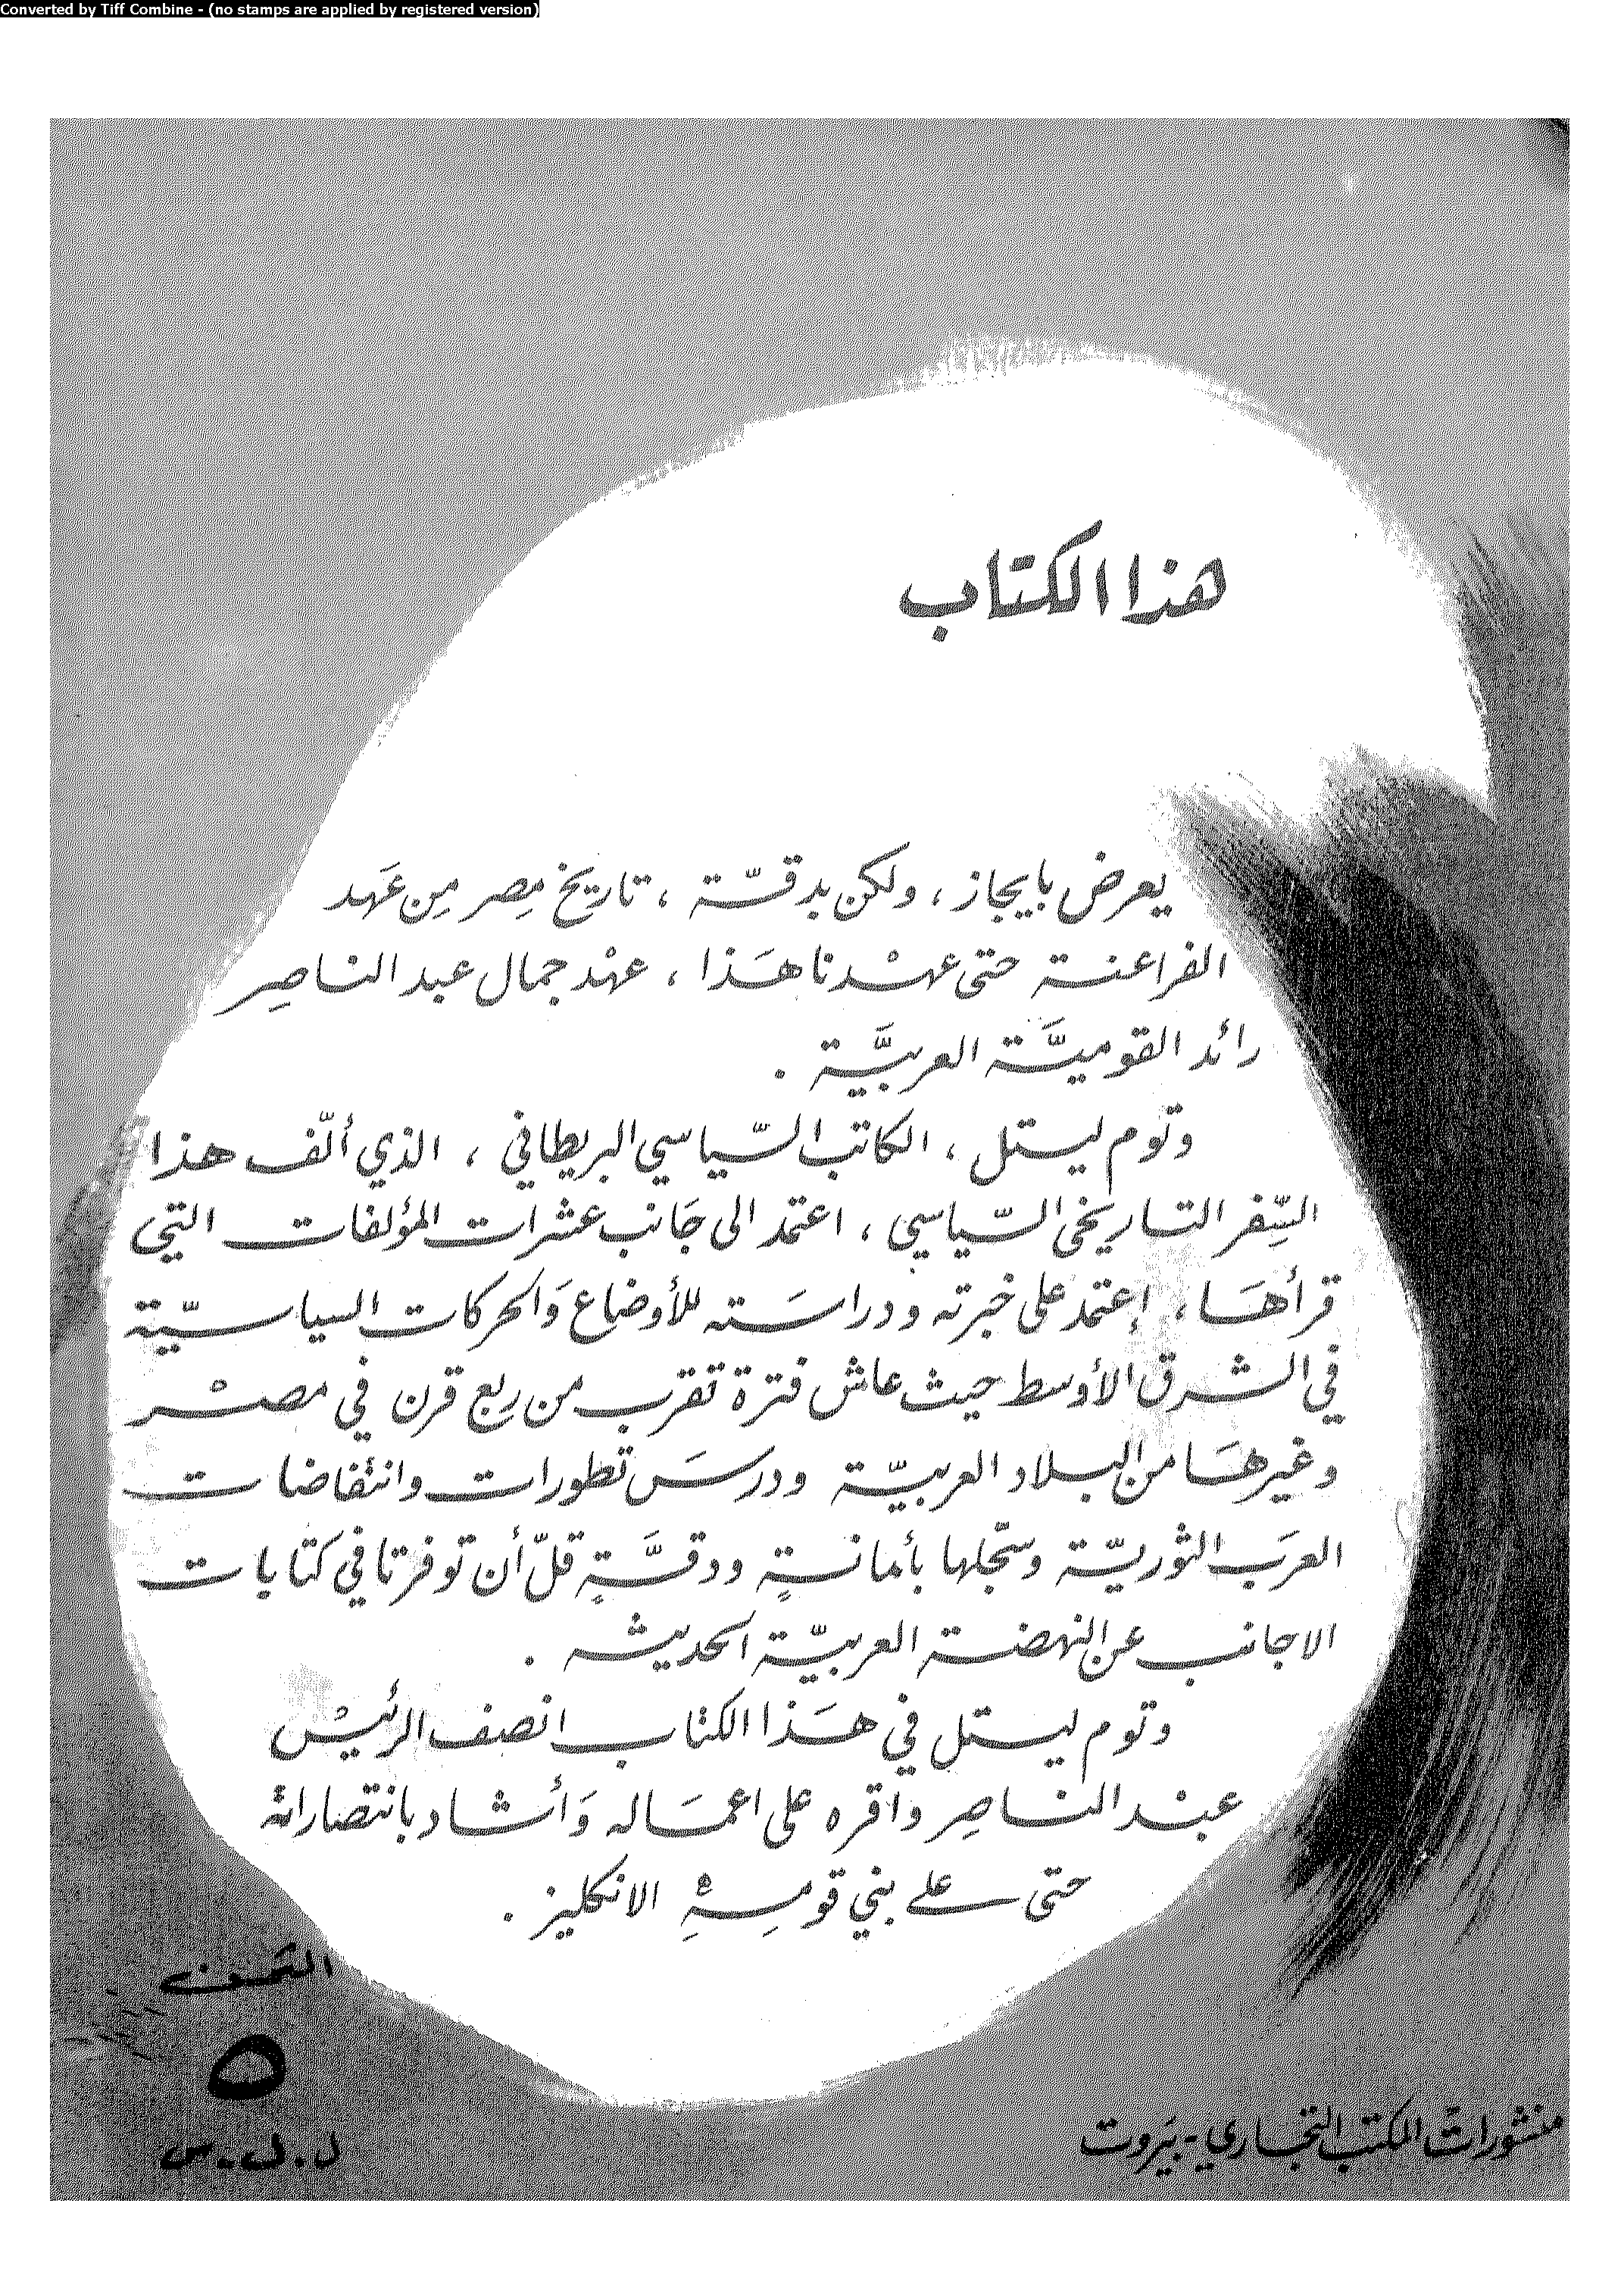 Converted by Tiff Combine - (no stamps are applied by registered version)
هذا الكتاب
يعرض بايجاز ، ولكن بدقّة ، تاريخ مِصر مِن عَهد
الفراعنة حتى عهْدنا هَذا ، عهْد جمال عبد الناصِر
رائد القوميَّة العربيَّة .
وتوم ليستل ، الكاتب السّياسي البريطاني ، الذي ألّف هذا
السِّفر التاريخي السّياسي ، اعتمد الى جَانب عشرات المؤلفات التي
قرأهَا ، إعتمد على خبرته ودراسَته للأوضاع وَالحركات السياسيّة
في الشرق الأوسط حيث عاش فترة تقرب من ربع قرن في مصْر
وغيرهَا من البلاد العربيّة ودرسَ تطورات وانتفاضات
العرَب الثوريّة وسجّلها بأمانةٍ ودقَّةٍ قلّ أن توفرتا في كتابات
الاجانب عن النهضة العربيّة الحديثه .
وتوم ليستل في هَذا الكتاب انصف الرئيْس
عبد الناصِر واقره على اعمَاله وَأشاد بانتصاراته
حتى على بني قومِهِ الانكليز .
الثمن
٥
ل. ل. س
منشورات المكتب التجاري - بيَروت